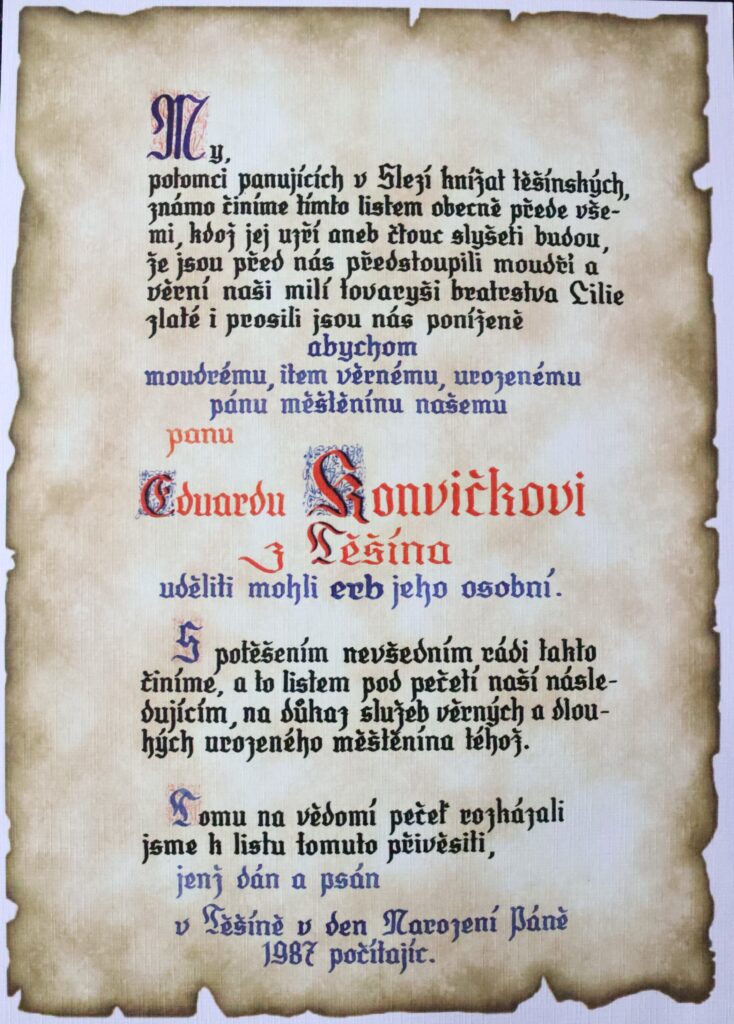 My,
potomci panujících v Slezí knížat těšínských,
známo činíme tímto listem obecně přede vše-
mi, kdož jej uzří aneb čtouc slyšeti budou,
že jsou před nás předstoupili moudří a
věrní naši milí tovaryši bratrstva Lilie
zlaté i prosili jsou nás poníženě
abychom
moudrému, item věrnému, urozenému
pánu měštěnínu našemu
panu
Eduardu Konvičkovi
z Těšína
uděliti mohli erb jeho osobní.
S potěšením nevšedním rádi takto
činíme, a to listem pod pečetí naší násle-
dujícím, na důkaz služeb věrných a dlou-
hých urozeného měštěnína téhož.
Tomu na vědomí pečeť rozkázali
jsme k listu tomuto přivěsiti,
jenž dán a psán
v Těšíně v den Narození Páně
1987 počítajíc.